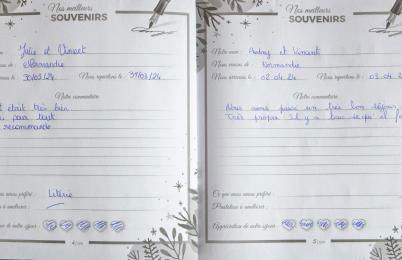 Nos meilleurs
SOUVENIRS
Julie et Vincent
Normandie
30/03/24 Nous repartons le : 31/03/24
Notre commentaire
était très bien
pour tout
recommande
avons préféré : Literie
à améliorer :
de notre séjour :
4
Nos meilleurs
SOUVENIRS
Notre nom : Audrey et Vincent
Nous venons de : Normandie
Nous arrivons le : 02.04.24 Nous repartons le : 03.04.2
Notre commentaire
Nous avons passé un très bon séjour,
Très propre il y a tout ce qu'il f
Ce que nous avons préféré :
Prestation à améliorer :
Appréciation de notre séjour :
5